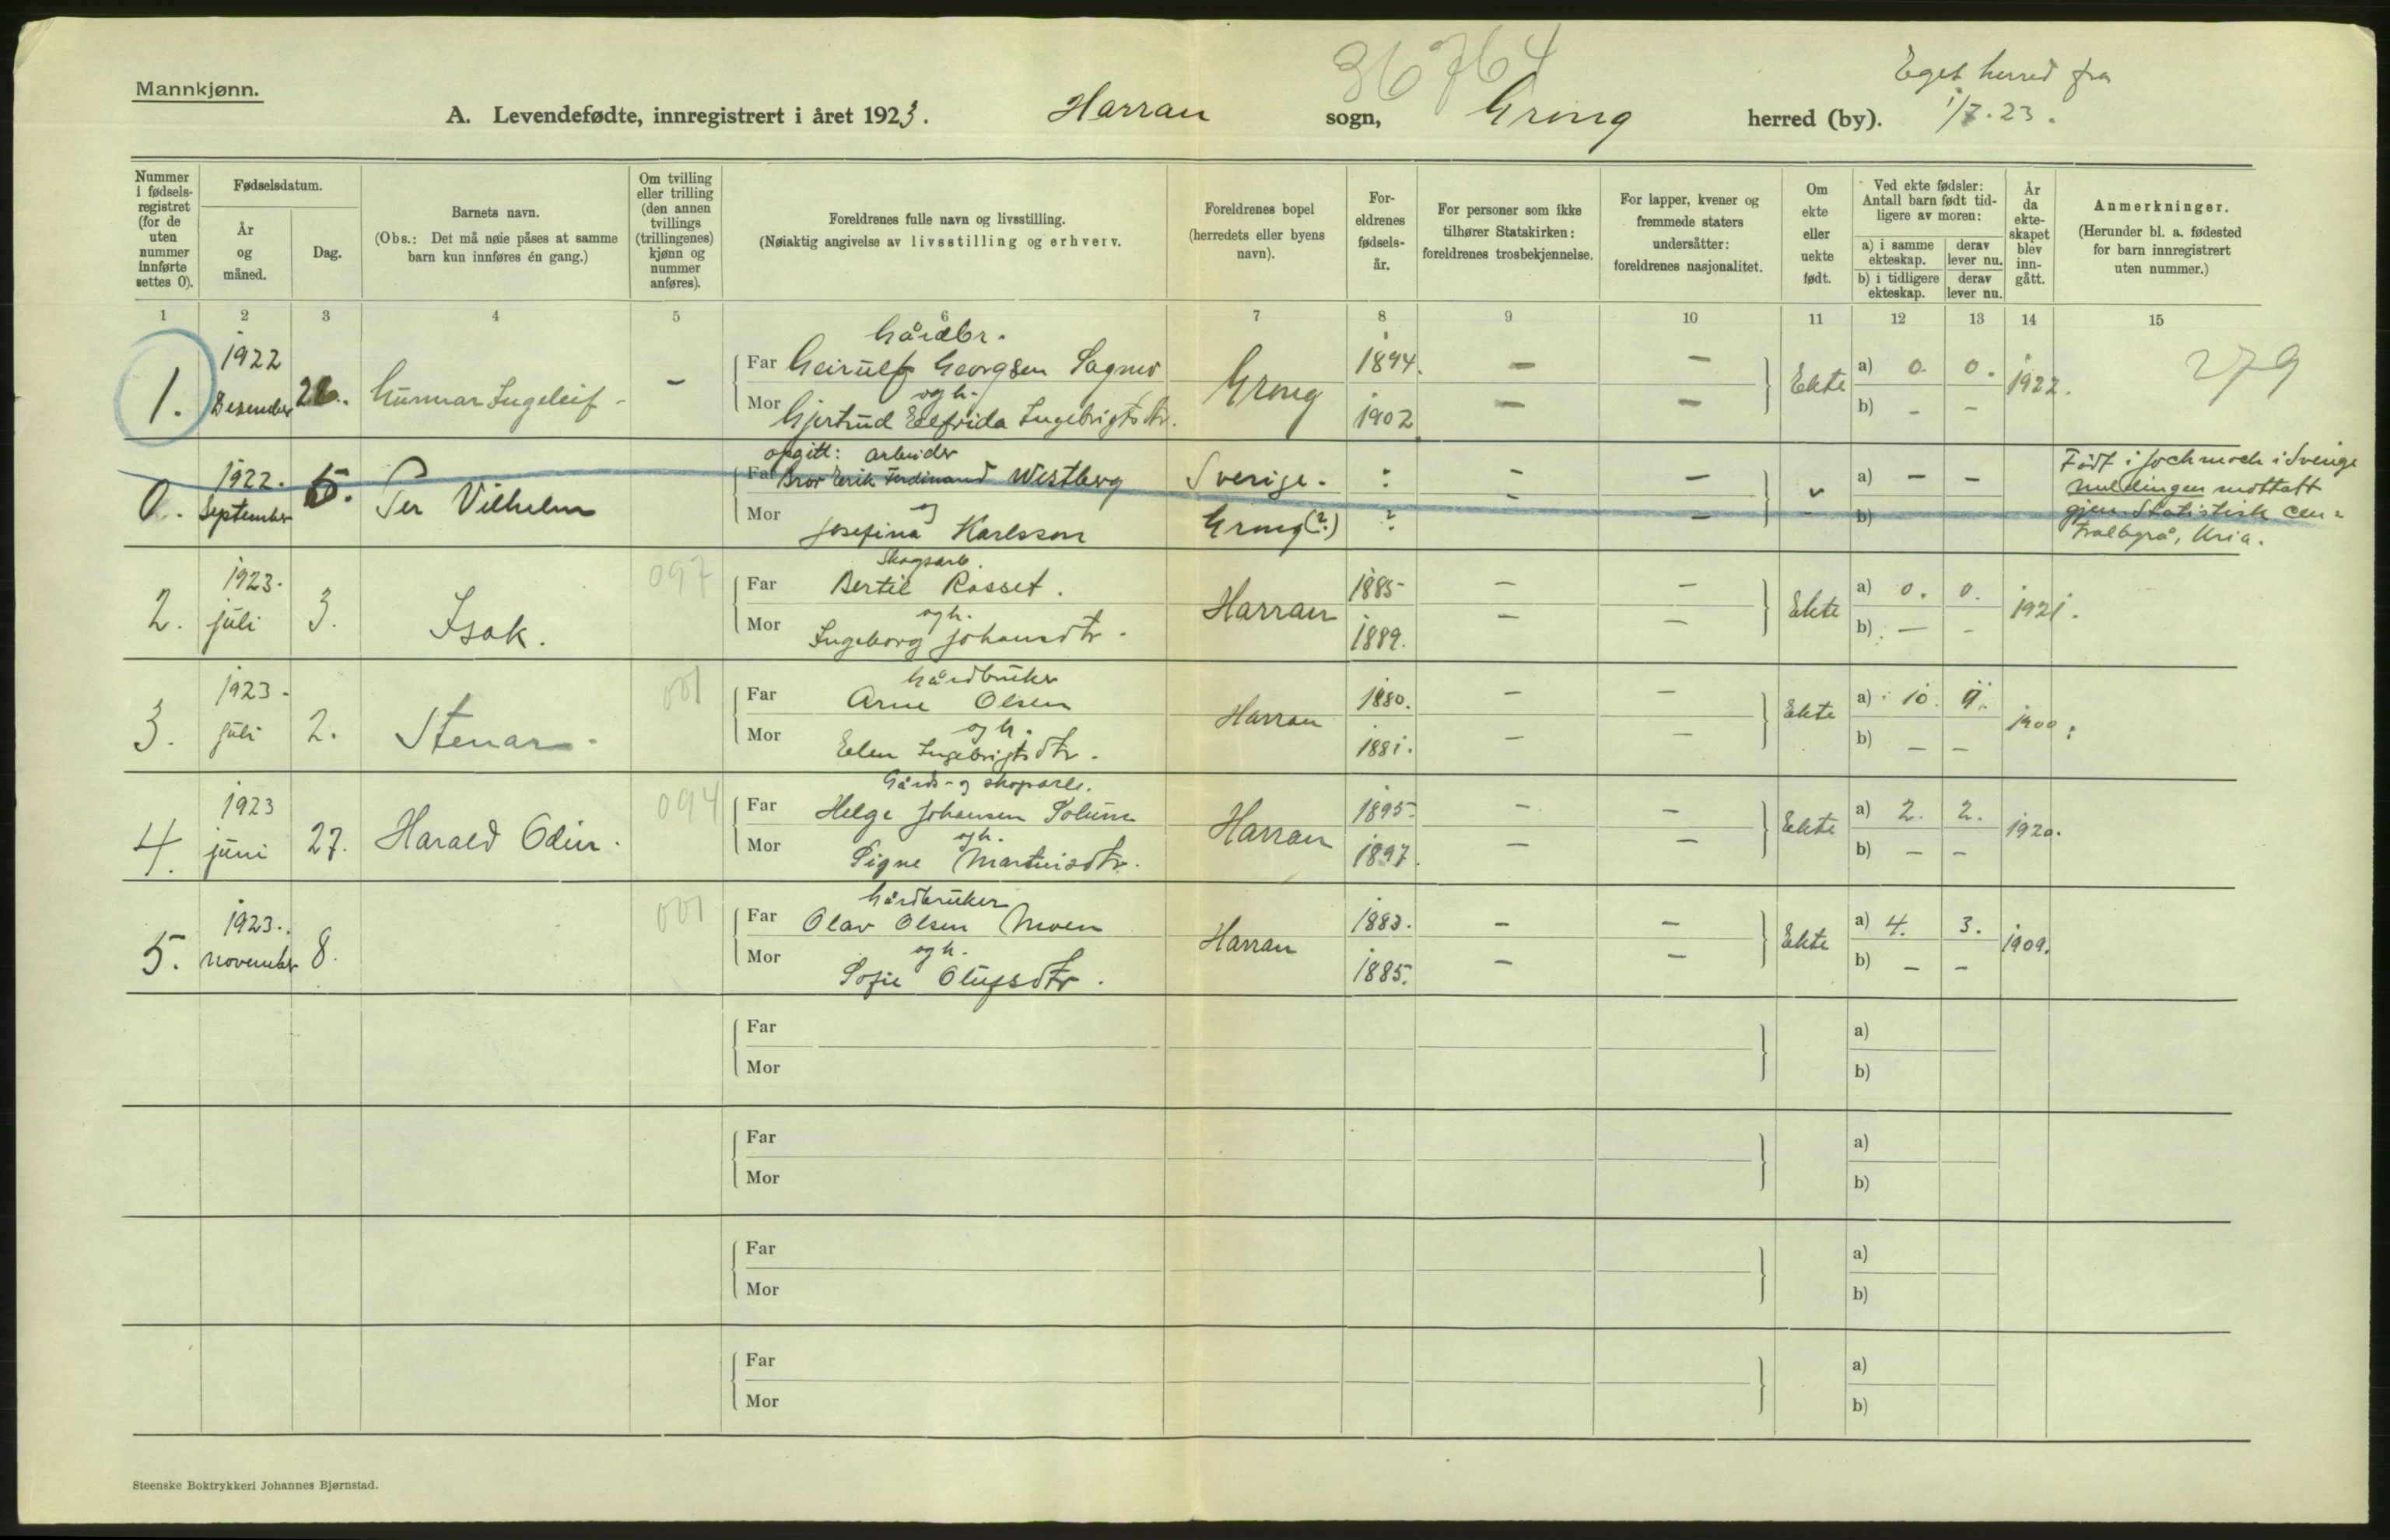 Mannkjønn.
36764
Eget herred fra
1/7.23.
A. Levendefødte, innregistrert i året 1923. Harran sogn, Grong herred (by).
Nummer i fødsels-registret (for de uten nummer innførte settes 0).
Fødselsdatum.
År og måned.
Dag.
Barnets navn.
(Obs.: Det må nøie påses at samme barn kun innføres én gang.)
Om tvilling eller trilling (den annen tvillings (trillingenes) kjønn og nummer anføres).
Foreldrenes fulle navn og livsstilling.
(Nøiaktig angivelse av livsstilling og erhverv.
Foreldrenes bopel (herredets eller byens navn).
For-eldrenes fødsels-år.
For personer som ikke tilhører Statskirken: foreldrenes trosbekjennelse.
For lapper, kvener og fremmede staters undersåtter: foreldrenes nasjonalitet.
Om ekte eller uekte født.
Ved ekte fødsler: Antall barn født tid-ligere av moren:
a) i samme ekteskap.
derav lever nu.
b) i tidligere ekteskap.
derav lever nu.
År da ekte-skapet blev inn-gått.
Anmerkninger.
(Herunder bl. a. fødested for barn innregistrert uten nummer.)
1 2 3 4 5 6 7 8 9 10 11 12 13 14 15
Gårdbr.
1922
Far Geirulf Georgsen 1894. — — a) 0. 0. 279
1. Desember Gunnar Ingeleif - — og h. Grong Ekte 1922.
Mor Gjertrud Elfrida Ingebrigtsdtr. 1902 — — b) — —
opgitt: arbeider
1922. Far Bror Erik Ferdinand Westberg Sverige - : — — a) — — Født i Jockmock i Sverige
0. September 5. Per Vilhelm og meldingen mottatt
Mor Josefina Karlsson Grong (?) ? — — b) gjen. Statistisk Cen=
tralbyrå, Kria.
Skogsarb.
1923. 097 Far Bertil Rosset. 1885 — — a) 0. 0.
2. juli 3. Isak. og h. Harran Ekte 1921.
Mor Ingeborg Johansdtr. 1889. — — b) — —
Gårdbruker
1923 - 001 Far Arne Olsen 1880. — — a) 10. 9.
3. juli 2. Stenar - og h. Harran Ekte 1900.
Mor Elen Ingebrigtsdtr. 1881. — — b) — —
Gårds- og skogsarb.
1923 094 Far Helge Johansen Solum 1895 — — a) 2. 2.
4. juni 27. Harald Odin. og h. Harran Ekte 1920.
Mor Signe Martinisdtr. 1897. — — b) — —
Gårdbruker
1923. 001 Far Olav Olsen Moen 1883. — — a) 4. 3.
5. november 8. og h. Harran Ekte 1909.
Mor Sofie Olufsdtr. 1885. — — b) — —
Far a)
Mor b)
Far a)
Mor b)
Far a)
Mor b)
Far a)
Mor b)
Steenske Boktrykkeri Johannes Bjørnstad.